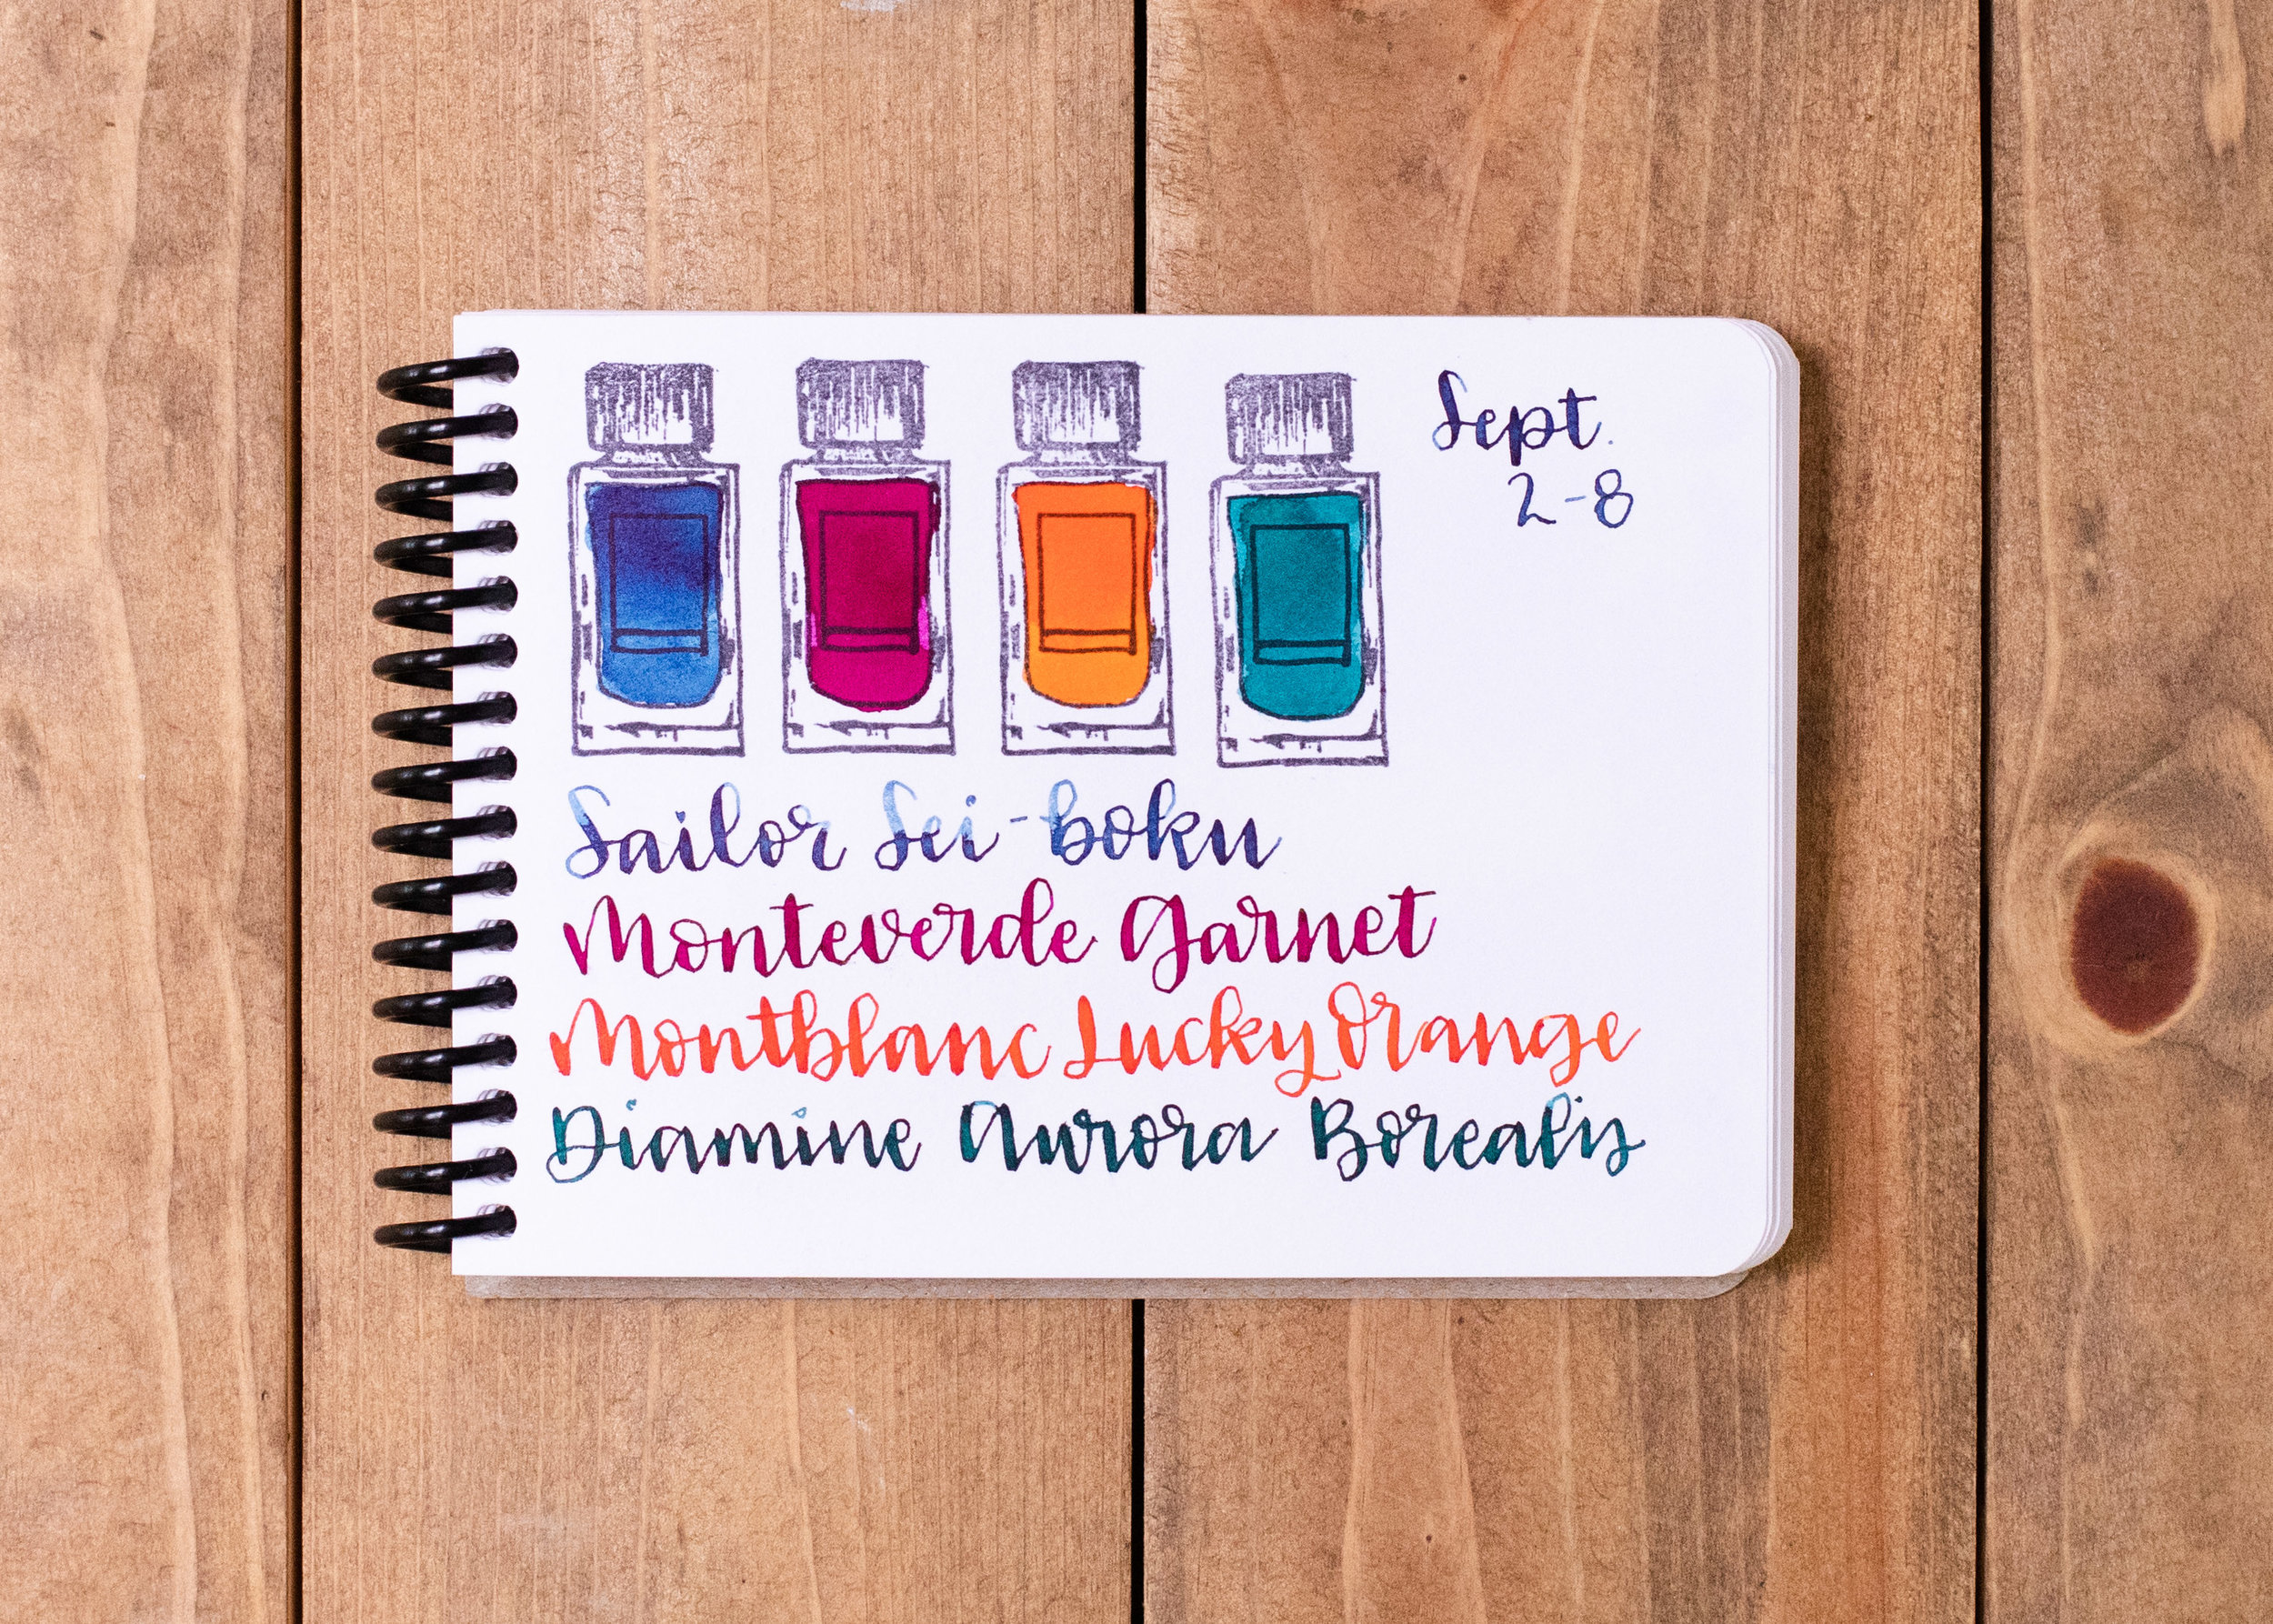 Sept.
2-8
Sailor Sei-boku
Monteverde Garnet
Montblanc Lucky Orange
Diamine Aurora Borealis